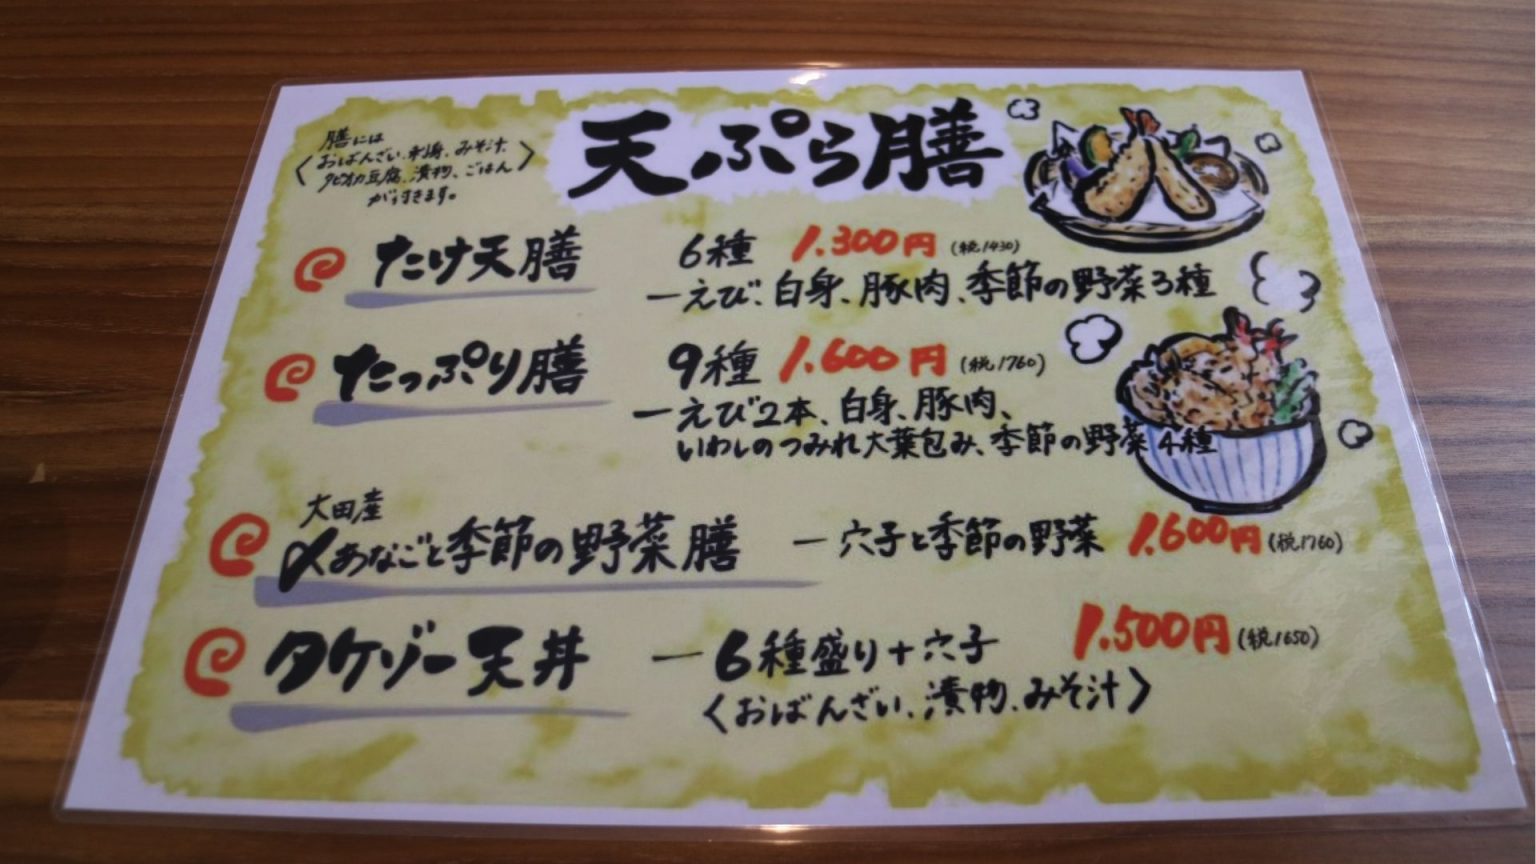 天ぷら膳
膳には
〈おばんざい、刺身、みそ汁
タピオカ豆腐、漬物、ごはん〉
が付きます。
たけ天膳 6種 1.300円(税1430)
ーえび、白身、豚肉、季節の野菜3種
たっぷり膳 9種 1.600円(税1760)
ーえび2本、白身、豚肉、
いわしのつみれ大葉包み、季節の野菜4種
大田産
〆あなごと季節の野菜膳 ー穴子と季節の野菜 1.600円(税1760)
タケゾー天丼 ー6種盛り+穴子 1.500円(税1650)
〈おばんざい、漬物、みそ汁〉